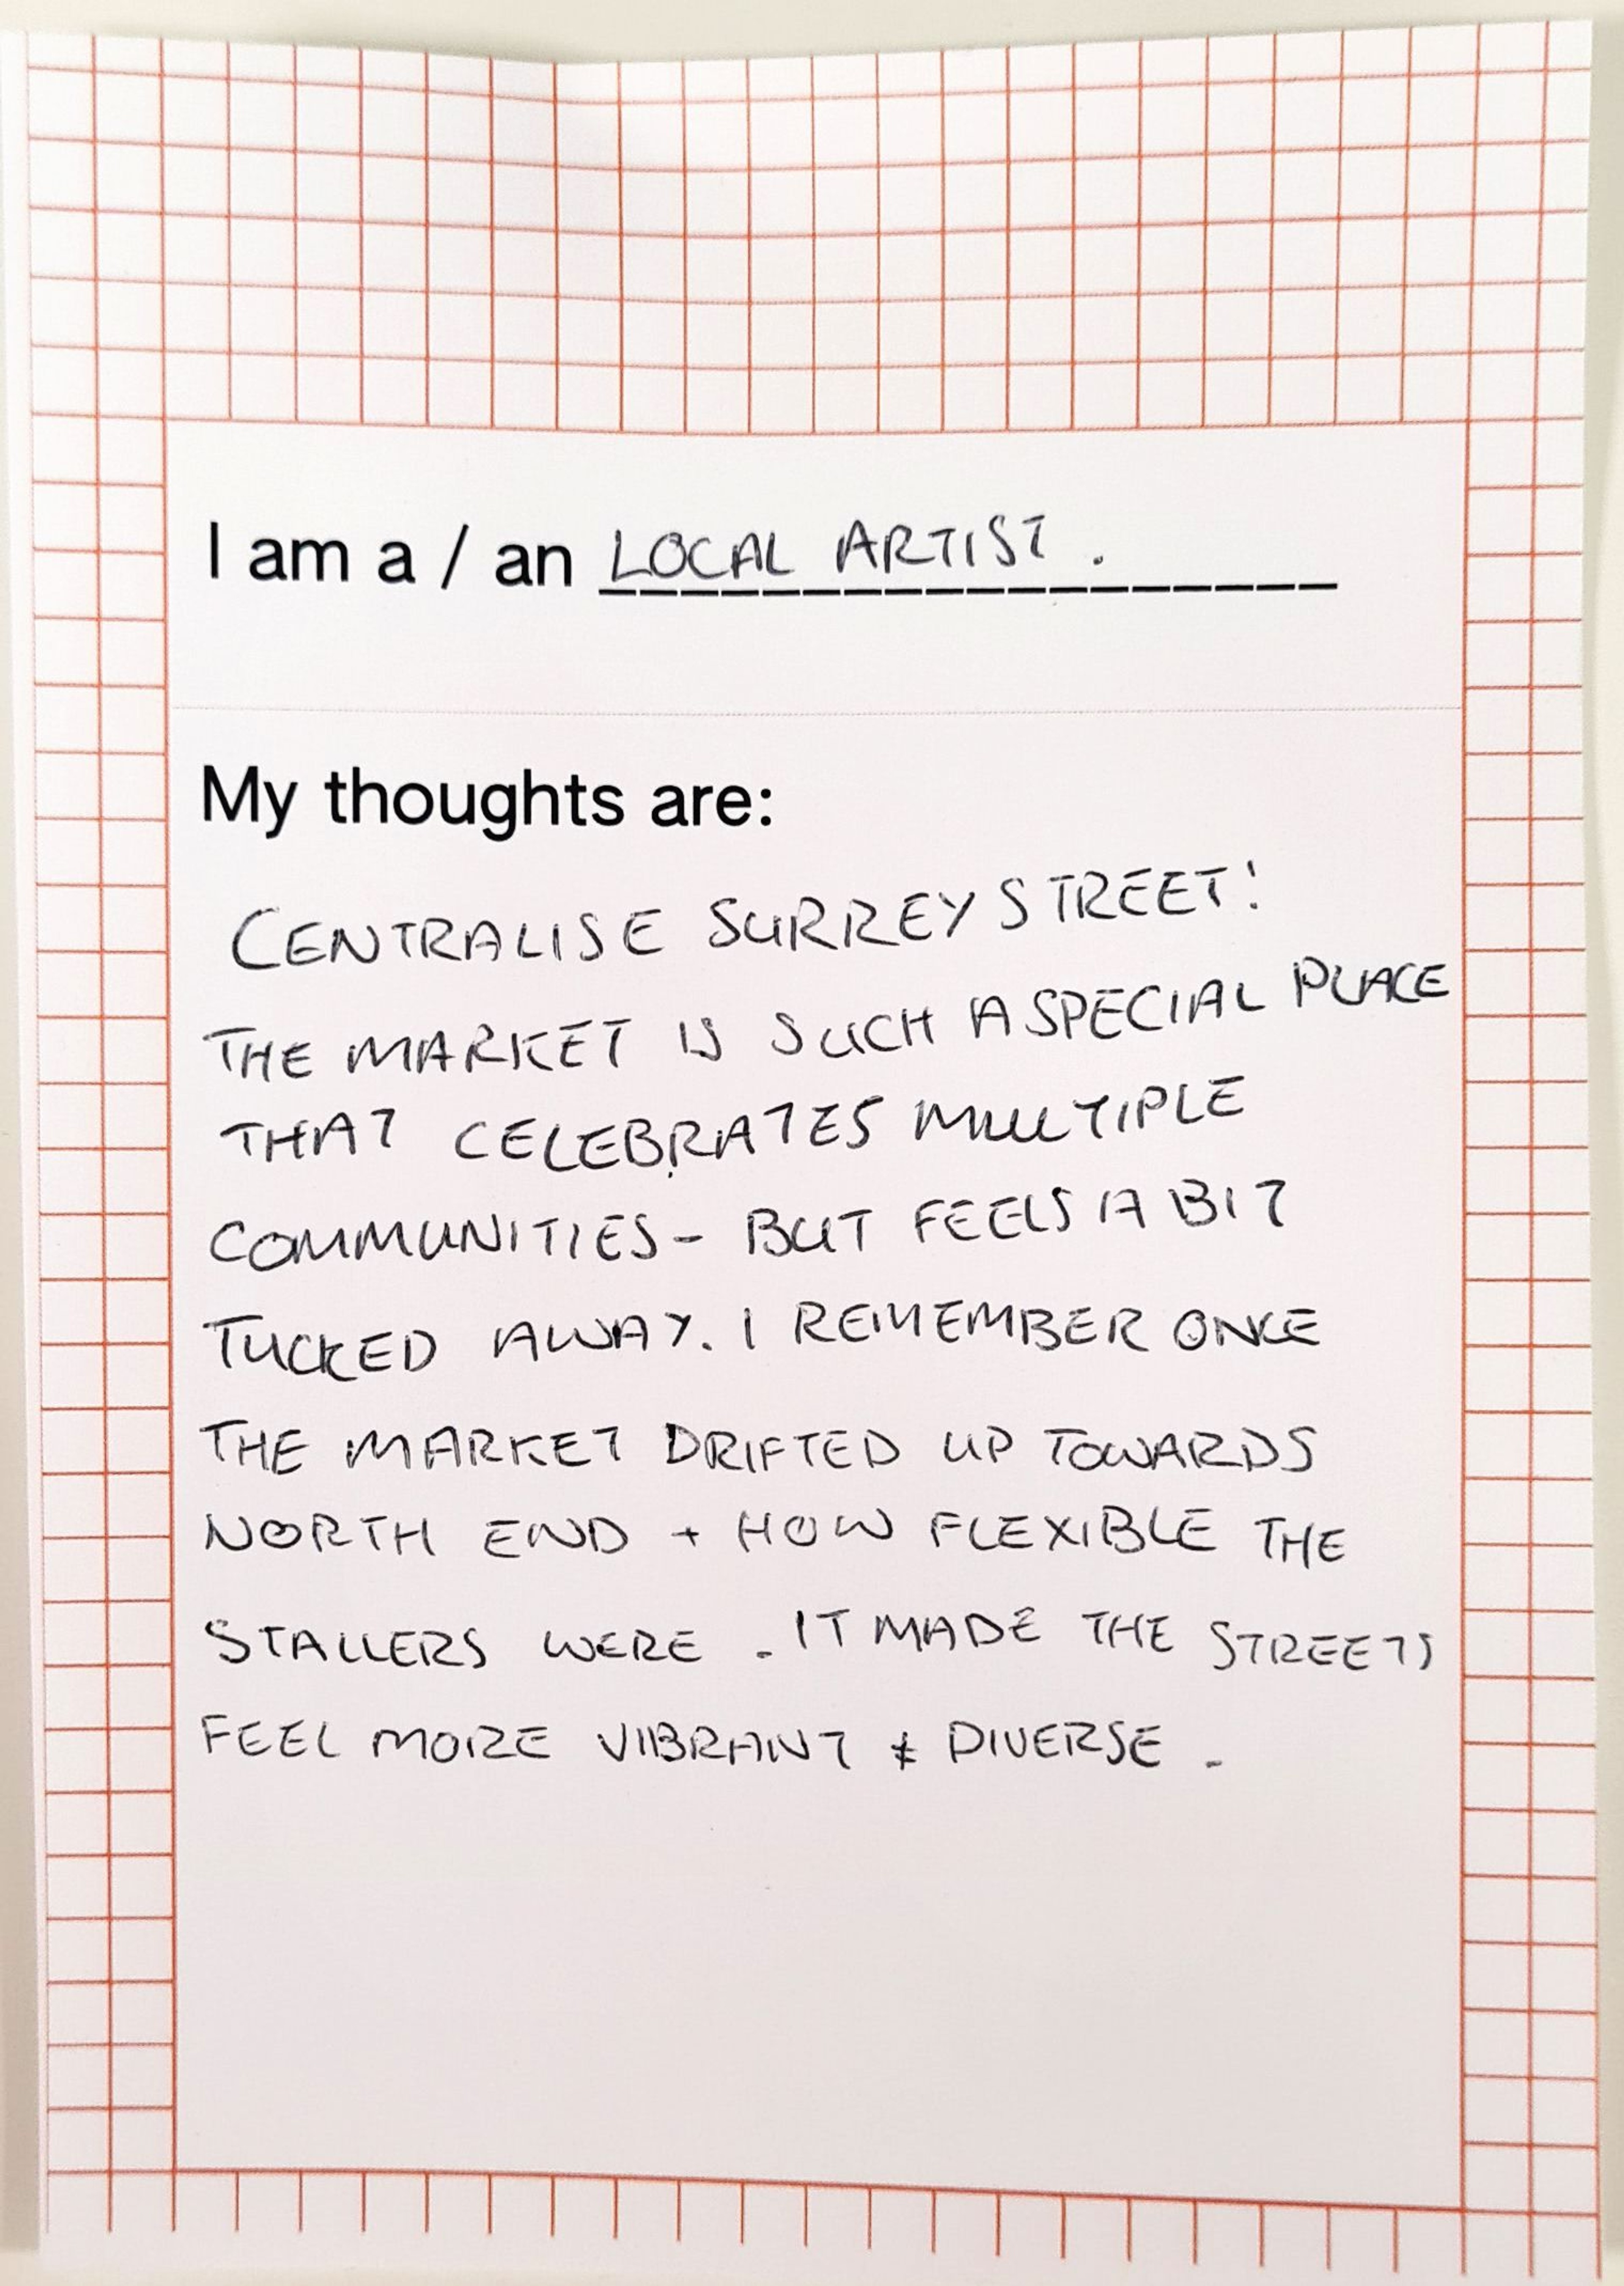 I am a / an LOCAL ARTIST.
My thoughts are:
CENTRALISE SURREY STREET!
THE MARKET IS SUCH A SPECIAL PLACE
THAT CELEBRATES MULTIPLE
COMMUNITIES - BUT FEELS A BIT
TUCKED AWAY. I REMEMBER ONCE
THE MARKET DRIFTED UP TOWARDS
NORTH END + HOW FLEXIBLE THE
STALLERS WERE. IT MADE THE STREETS
FEEL MORE VIBRANT & DIVERSE.